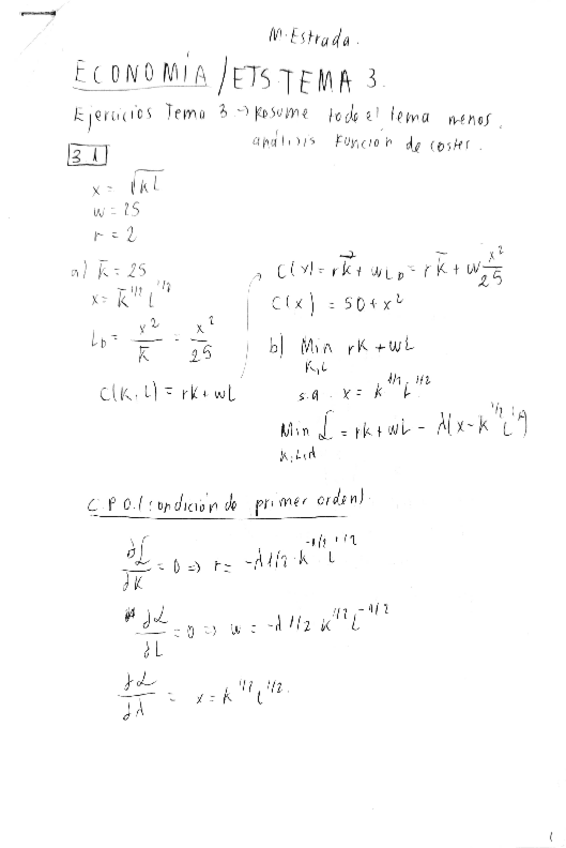 M. Estrada.
ECONOMÍA / ETS. TEMA 3.
Ejercicios Tema 3 → Resume todo el tema menos
análisis función de costes.
3.1
x = √KL
w = 25
r = 2
a) K̄ = 25
x = K̄^1/2 L^1/2
L_D = x²/K̄ = x²/25
C(K,L) = rK + wL
C(x) = rK̄ + wL_D = rK̄ + w x²/25
C(x) = 50 + x²
b) Min rK + wL
K,L
s.a. x = K^1/2 L^1/2
Min ℒ = rK + wL - λ(x - K^1/2 L^1/2)
K,L,λ
C.P.O. (condición de primer orden).
∂ℒ/∂K = 0 ⇒ r = -λ 1/2 · K^-1/2 L^1/2
∂ℒ/∂L = 0 ⇒ w = -λ 1/2 K^1/2 L^-1/2
∂ℒ/∂λ = x = K^1/2 L^1/2.